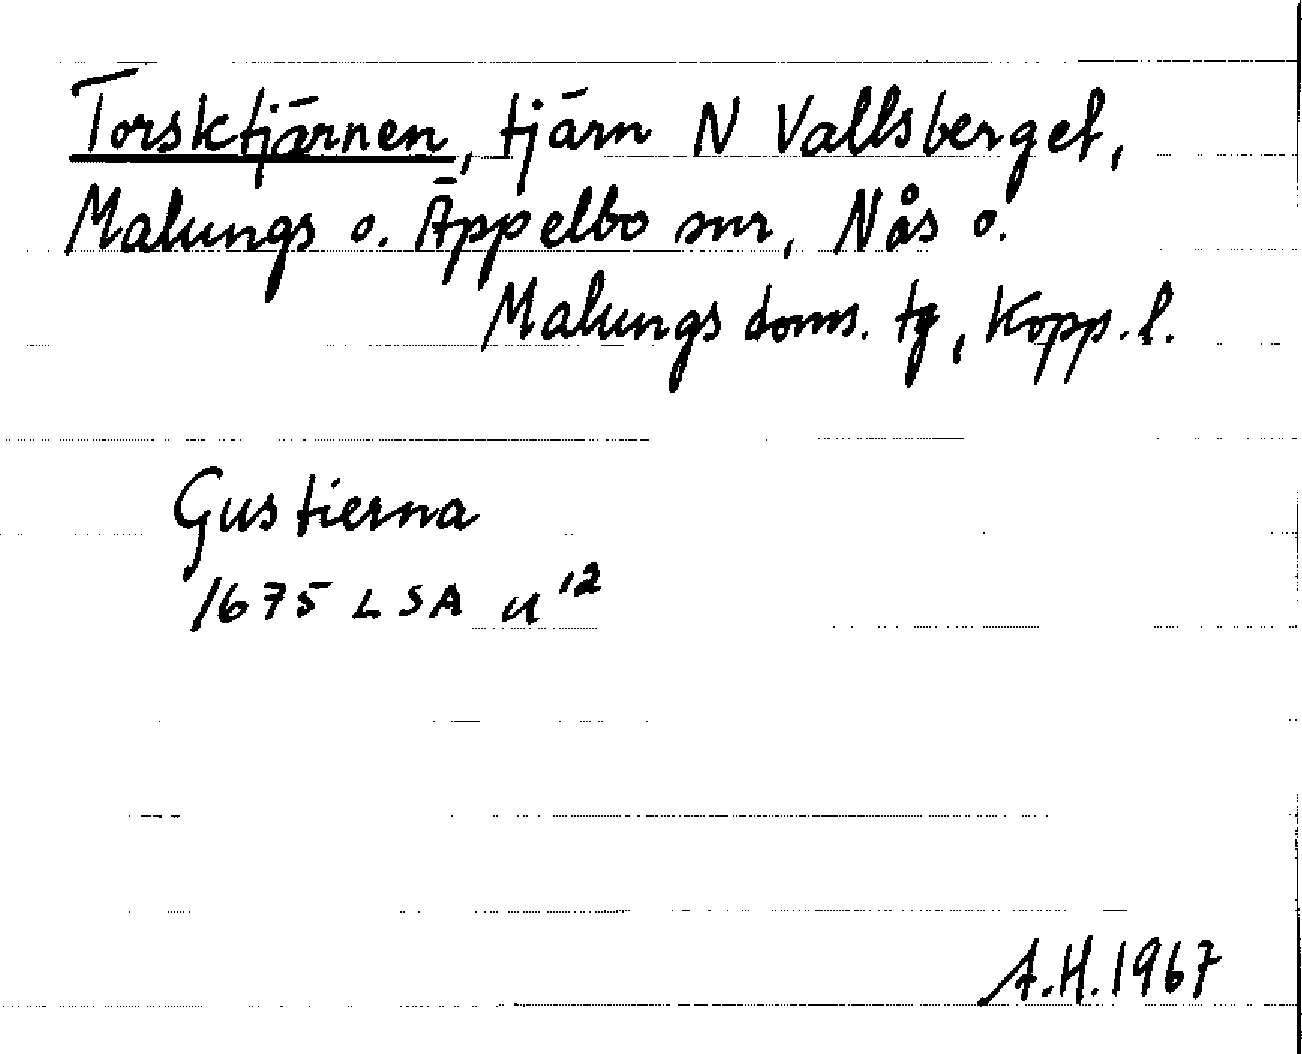 Torsktjärnen, tjärn N Vallsberget,
Malungs o. Äppelbo snr, Nås o.
Malungs doms. tg, Kopp. l.
Gustierna
1675 LSA u'2
A.H. 1967